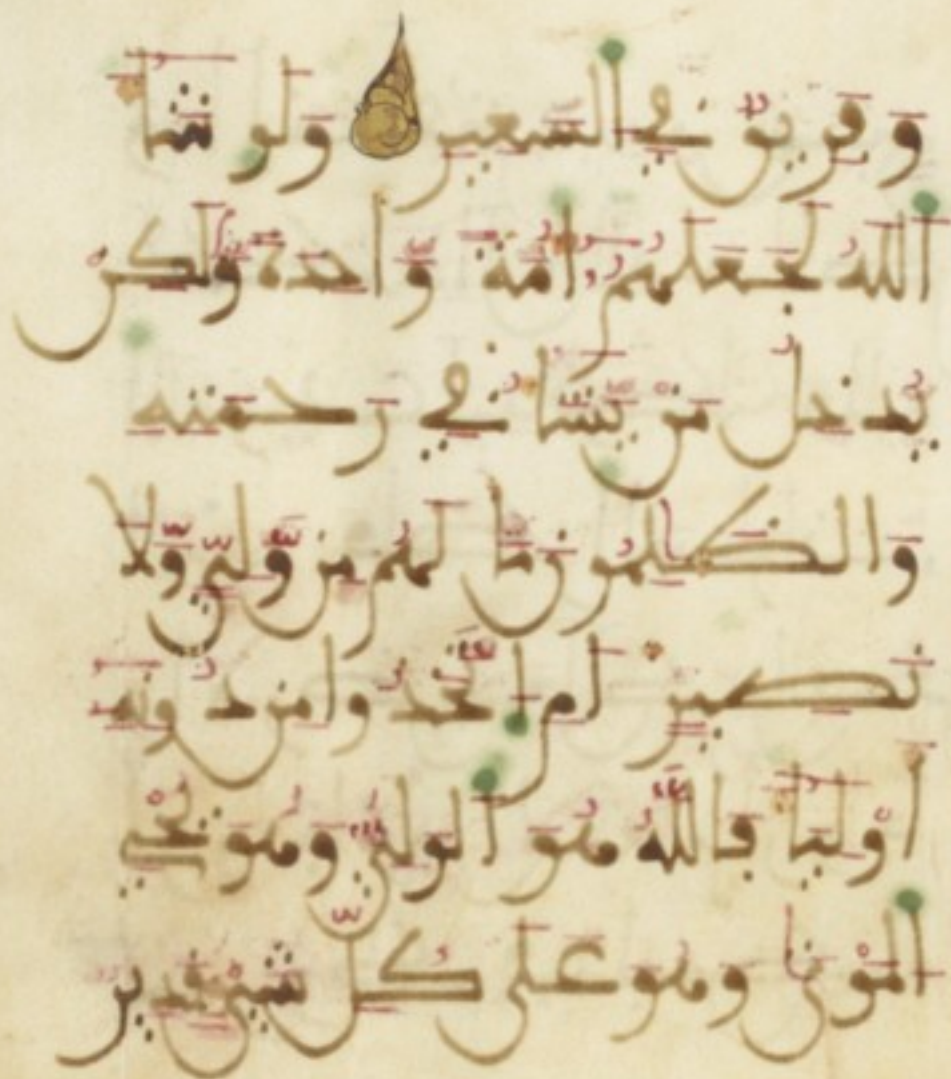 وفريق في السعير ولو شا
الله لجعلهم امة واحدة ولكن
يدخل من يشا في رحمته
والظلمون ما لهم من ولي ولا
نصير ام اتخذوا من دونه
اوليا فالله هو الولي وهو يحي
الموتى وهو على كل شي قدير